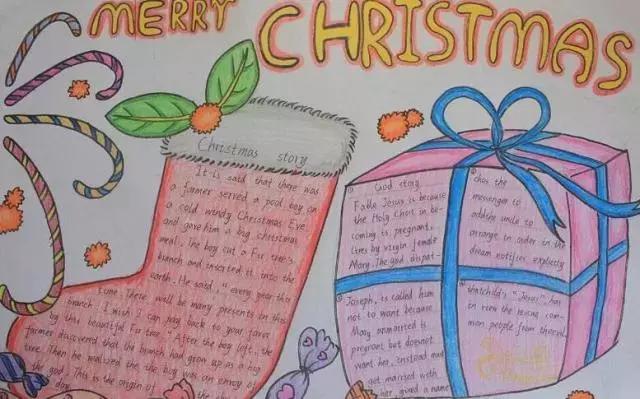 MERRY CHRISTMAS
Christmas story
It is said that there was
a farmer served a pool boy on
a cold windy Christmas Eve
and gave him a big christmas
meal. The boy cut a Fir tree's
branch and inserted it into the
earth. He said, "every year this
time There will be many presents in this
branch. I wish I can pay back to your favor
by this beautiful Fir tree." After the boy left, the
farmer discovered that the branch had grown up as a big
tree. Then he realized the the boy was an envoy of
the god. This is the origin of
day
God story
① Fable Jesus is because
the Holy Ghost in be-
coming is pregnant,
lives by virgin female
Mary. The god dispat-
② ches the
messenger to
addshe smile to
arrange in order in the
dream notifies explicitly
③ Joseph, is called him
not to want because
Mary unmarried is
pregnant but doesnot
want her, instead must
get married with
her, gived a name
"Jesus", has
in turn the
mon people from